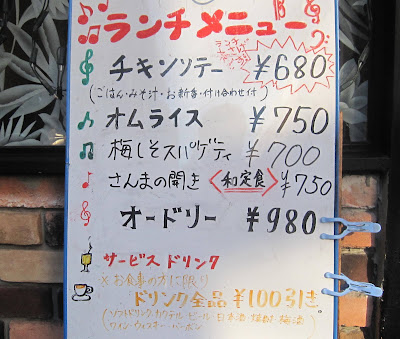 ランチメニュー
チキンソテー ¥680
(ごはん・みそ汁・お新香・付け合わせ付)
オムライス ¥750
梅しそスパゲティ ¥700
さんまの開き <和定食> ¥750
オードリー ¥980
サービスドリンク
※お食事の方に限り
ドリンク全品¥100引き
(ソフトドリンク・カクテル・ビール・日本酒・焼酎・梅酒
ワイン・ウィスキー・バーボン)